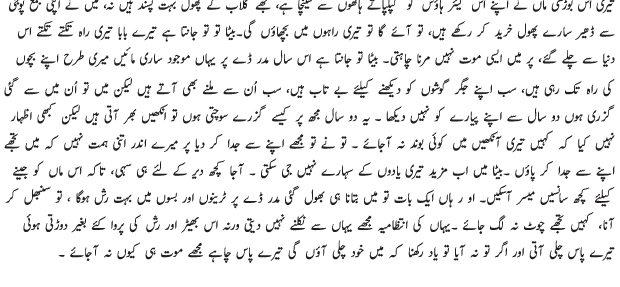 تیری اس بوڑھی ماں نے اپنے اس کیئر ہاؤس کو کپکپاتے ہاتھوں سے سینچا ہے، تجھے گلاب کے پھول بہت پسند ہیں نہ، میں نے اپنی جمع پونجی
سے ڈھیر سارے پھول خرید کر رکھے ہیں، تو آئے گا تو تیری راہوں میں بچھاؤں گی۔بیٹا تو تو جانتا ہے تیرے بابا تیری راہ تکتے تکتے اس
دنیا سے چلے گئے، پر میں ایسی موت نہیں مرنا چاہتی۔ بیٹا تو جانتا ہے اس سال مدر ڈے پر یہاں موجود ساری مائیں میری طرح اپنے بچوں
کی راہ تک رہی ہیں، سب اپنے جگر گوشوں کو دیکھنے کیلئے بے تاب ہیں، سب اُن سے ملنے بھی آتے ہیں لیکن میں تو اُن میں سے گئی
گزری ہوں دو سال سے اپنے پیارے کو نہیں دیکھا ۔ یہ دو سال مجھ پر کیسے گزرے سوچتی ہوں تو آنکھیں بھر آتی ہیں لیکن کبھی اظہار
نہیں کیا کہ کہیں تیری آنکھیں میں کوئی بوند نہ آجائے ۔ تو نے تو مجھے اپنے سے جدا کر دیا پر میرے اندر اتنی ہمت نہیں کہ میں تجھے
اپنے سے جدا کر پاؤں ۔بیٹا میں اب مزید تیری یادوں کے سہارے نہیں جی سکتی ۔ آجا کچھ دیر کے لئے ہی سہی، تاکہ اس ماں کو جینے
کیلئے کچھ سانسیں میسر آسکیں۔ او ر ہاں ایک بات تو میں بتانا ہی بھول گئی مدر ڈے پر ٹرینوں اور بسوں میں بہت رش ہوگا ، تو سنبھل کر
آنا، کہیں تجھے چوٹ نہ لگ جائے ۔یہاں کی انتظامیہ مجھے یہاں سے نکلنے نہیں دیتی ورنہ اس بھیڑ اور رش کی پروا کئے بغیر دوڑتی ہوئی
تیرے پاس چلی آتی اور اگر تو نہ آیا تو یاد رکھنا کہ میں خود چلی آؤں گی تیرے پاس چاہے مجھے موت ہی کیوں نہ آجائے ۔